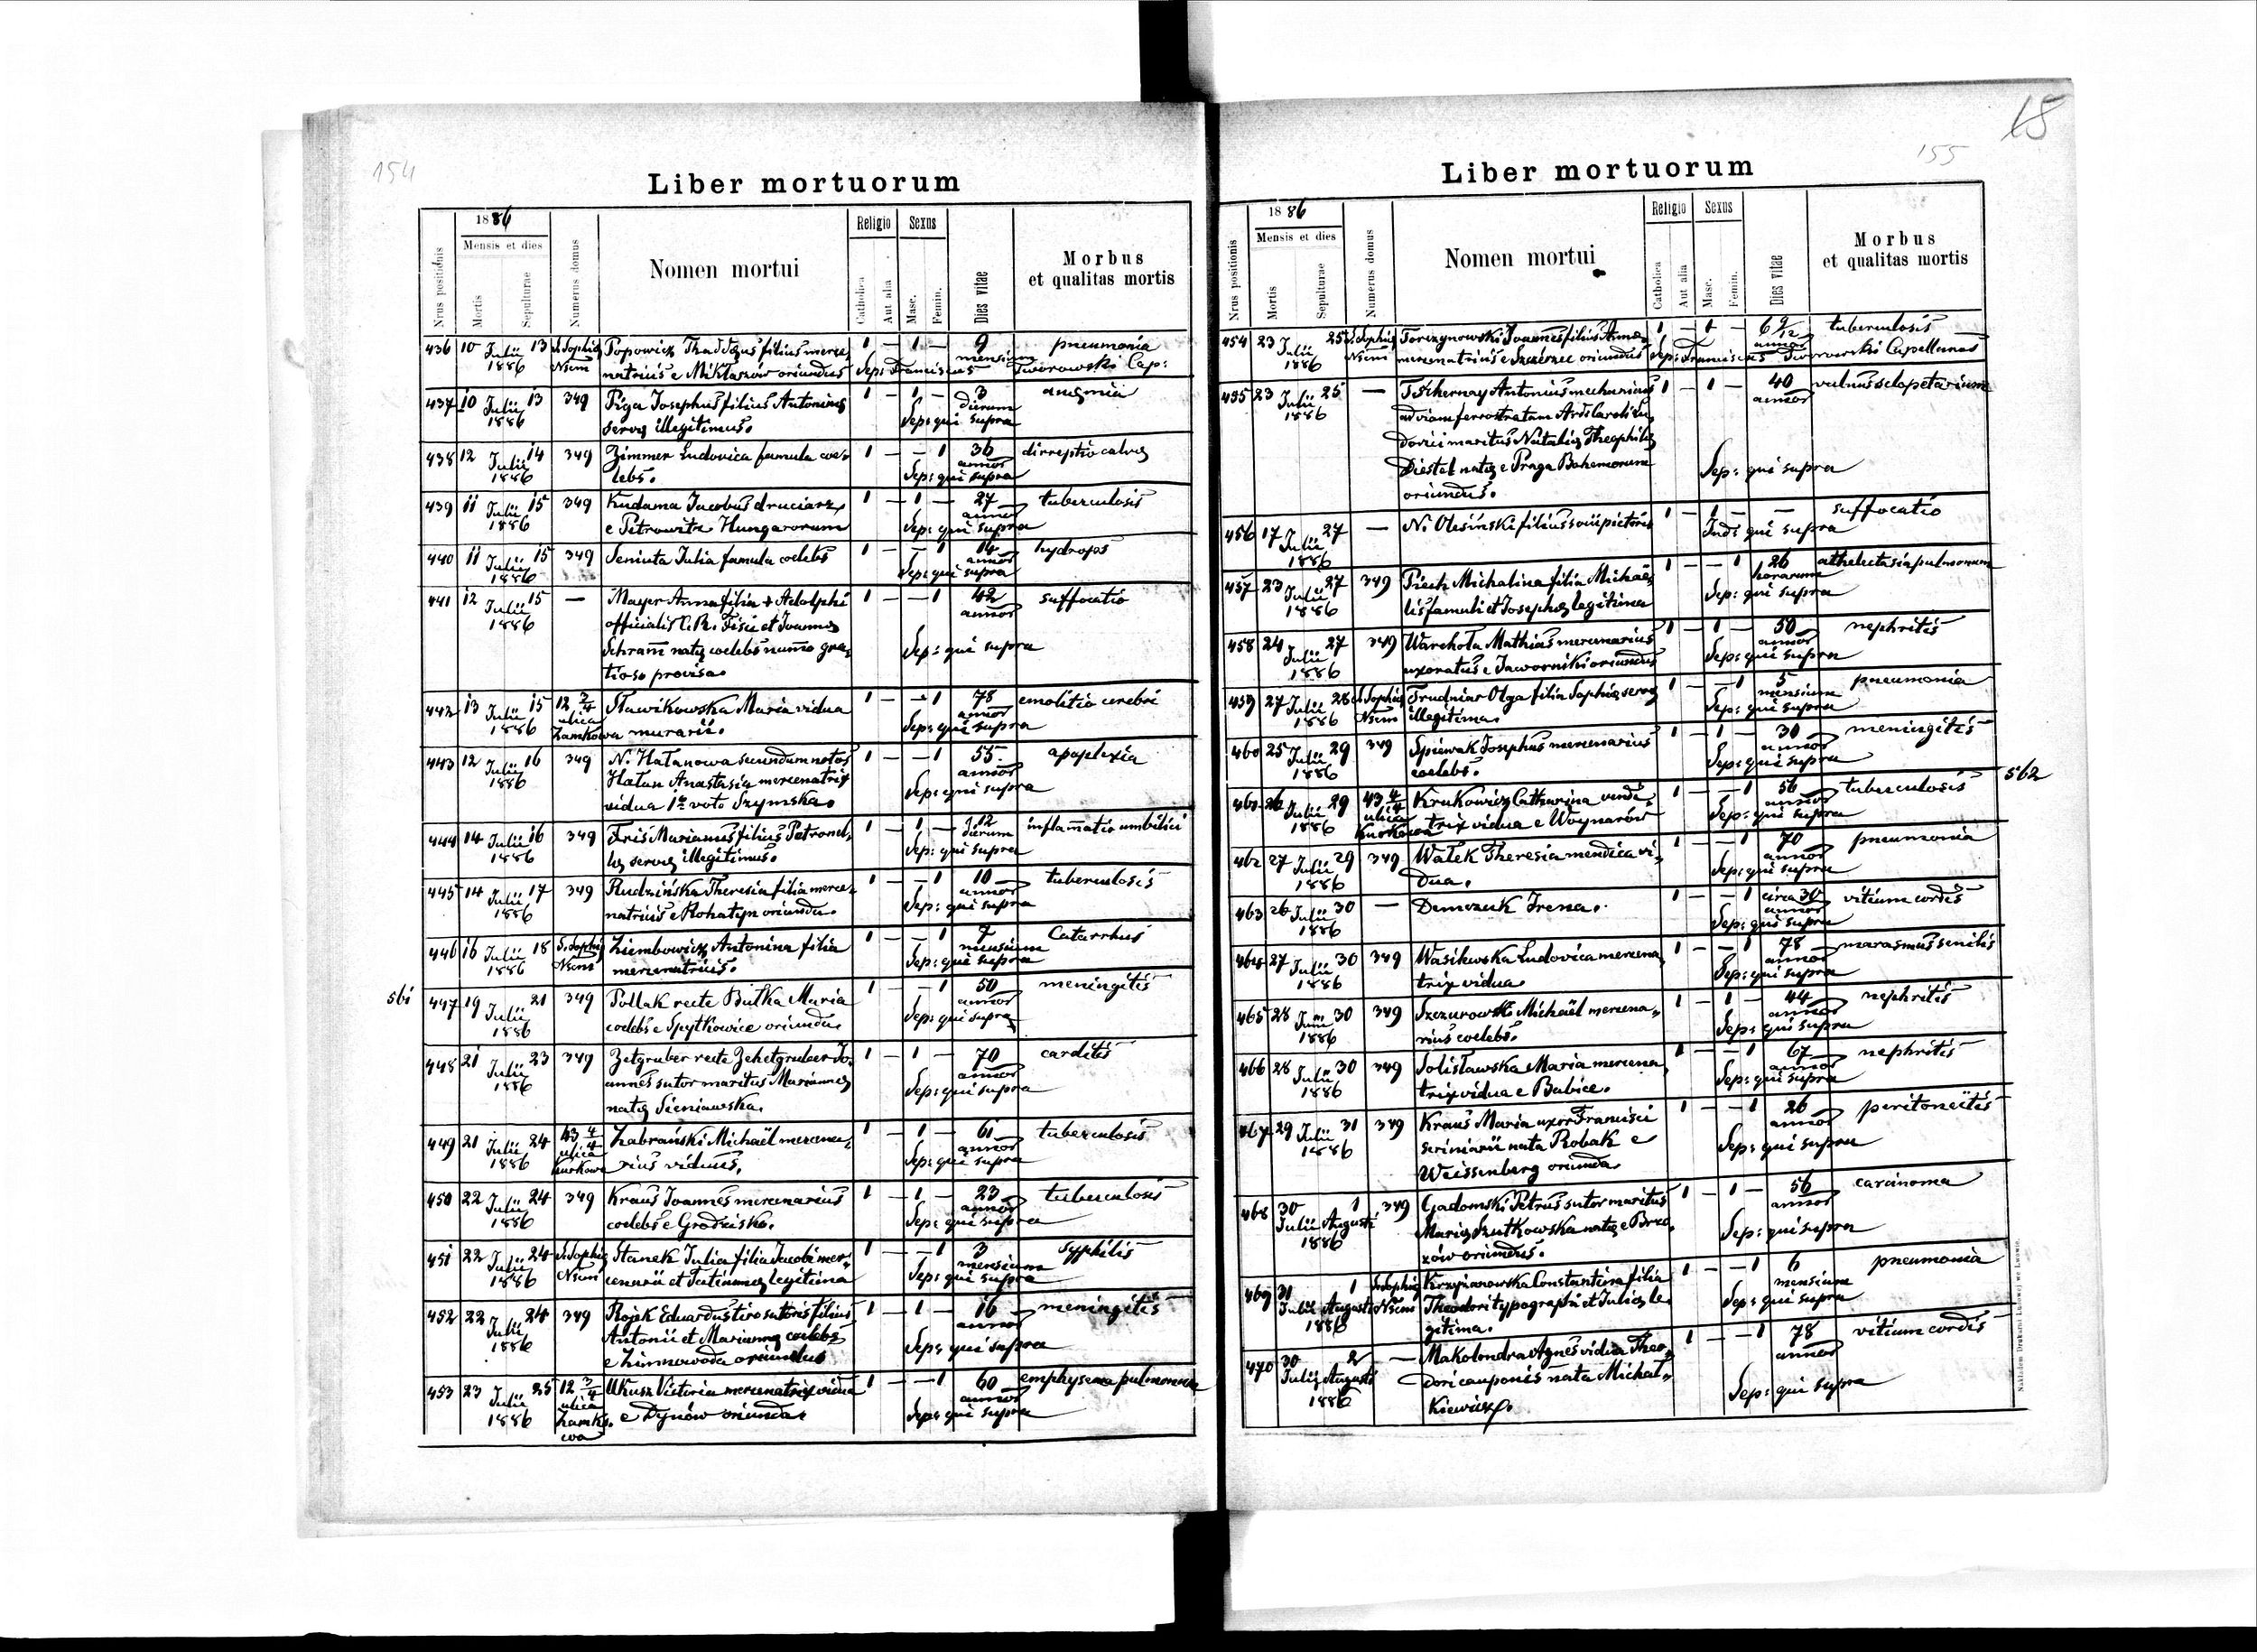 154
Liber mortuorum
1886
Mensis et dies
Religio
Sexus
Nrus positionis
Mortis
Sepulturae
Numerus domus
Nomen mortui
Catholica
Aut alia
Masc.
Femin.
Dies vitae
Morbus
et qualitas mortis
436 10 Julii 13 S. Sophię Popowicz Thaddęus filius merce 1 — 1 — 9 pneumonia
1886 Nsem natricis e Mikłaszów oriundus Sep: Franciscus mensium Tworowski Cap:
437 10 Julii 13 349 Piga Josephus filius Antoninę 1 — 1 — 3 anęmia
1886 servę illegitimus. dierum Sep: qui supra
438 12 Julii 14 349 Zimmer Ludovica famula coe 1 — — 1 36 dirreptio calvę
1886 lebs. annor Sep: qui supra
439 11 Julii 15 349 Kudama Jacobus druciarz 1 — 1 — 27 tuberculosis
1886 e Petrowitz Hungarorum annor Sep: qui supra
440 11 Julii 15 349 Seniuta Julia famula coelebs 1 — — 1 14 hydrops
1886 annor Sep: qui supra
441 12 Julii 15 — Mayer Anna filia + Adolphi 1 — — 1 42 suffocatio
1886 officialis C. R. Fisci et Joannę annor
Schram natę coelebs numo gra
tioso provisa. Sep: qui supra
442 13 Julii 15 12 3/4 Sławikowska Maria vidua 1 — — 1 78 emolitio cerebri
1886 ulica Zamkowa murarii. annor Sep: qui supra
443 12 Julii 16 349 N. Hałanowa secundum notos 1 — — 1 55 apoplexia
1886 Hałan Anastasia mercenatrix annor
vidua 1º voto Szymska. Sep: qui supra
444 14 Julii 16 349 Fris Marianus filius Petronel 1 — 1 — 12 inflamatio umbilici
1886 lę servę illegitimus. dierum Sep: qui supra
445 14 Julii 17 349 Rudzińska Theresia filia merce 1 — — 1 10 tuberculosis
1886 natricis e Rohatyn oriunda. annor Sep: qui supra
446 16 Julii 18 S. Sophię Ziembowicz Antonina filia 1 — — 1 7 Catarrhus
1886 Nsem mercenatricis. mensium Sep: qui supra
561
447 19 Julii 21 349 Pollak recte Bułka Maria 1 — — 1 50 meningitis
1886 coelebs e Spytkowice oriunda. annor Sep: qui supra
448 21 Julii 23 349 Zetgruber recte Zehetgruber Jo 1 — 1 — 70 carditis
1886 annes sutor maritus Mariannę annor
natę Sieniawska. Sep: qui supra
449 21 Julii 24 43 4/4 Zabrański Michaël mercena 1 — 1 — 61 tuberculosis
1886 ulica Kurkowa rius viduus. annor Sep: qui supra
450 22 Julii 24 349 Kraus Joannes mercenarius 1 — 1 — 23 tuberculosis
1886 coelebs e Grodzisko. annor Sep: qui supra
451 22 Julii 24 S. Sophię Stanek Julia filia Jacobi mer 1 — — 1 3 syphilis
1886 Nsem cenarii et Tatiannę legitima mensium Sep: qui supra
452 22 Julii 24 349 Rojek Eduardus tiro sutoris filius 1 — 1 — 16 meningitis
1886 Antonii et Mariannę coelebs annor
e Zimnowoda oriundus Sep: qui supra
453 23 Julii 25 12 3/4 Ukusz Victoria mercenatrix vidua 1 — — 1 60 emphysema pulmonum
1886 ulica Zamko wa e Dynów oriunda. annor Sep: qui supra
155
15
Liber mortuorum
1886
Mensis et dies
Religio
Sexus
Nrus positionis
Mortis
Sepulturae
Numerus domus
Nomen mortui
Catholica
Aut alia
Masc.
Femin.
Dies vitae
Morbus
et qualitas mortis
454 23 Julii 25 S. Sophię Torczynowski Joannes filius Annę 1 — 1 — 6 9/12 tuberculosis
1886 Nsem mercenatricis e Szczerzec oriundus Sep: Franciscus annor Tworowski Capellanus
455 23 Julii 25 — Tschernay Antonius mechanicus 1 — 1 — 40 vulnus sclopetarium
1886 ad viam ferrostratam Ards Caroli Lu annor
dovici maritus Natalię Theophilę
Diestel natę e Praga Bohemorum Sep: qui supra
oriundus.
456 17 Julii 27 — N. Olesinski filius socii pictoris 1 — 1 — — suffocatio
1886 Ind: qui supra
457 23 Julii 27 349 Piech Michalina filia Michaë 1 — — 1 26 athelectasia pulmonum
1886 lis famuli et Josephę legitima horarum Sep: qui supra
458 24 Julii 27 349 Warchoła Mathias mercenarius 1 — 1 — 50 nephritis
1886 uxoratus e Jaworniki oriundus annor Sep: qui supra
459 27 Julii 28 S. Sophię Trudniar Olga filia Sophię servę 1 — — 1 5 pneumonia
1886 Nsem illegitima. mensium Sep: qui supra
460 25 Julii 29 349 Spiewak Josephus mercenarius 1 — 1 — 30 meningitis
1886 coelebs. annor Sep: qui supra
562
461 26 Julii 29 43 4/4 Krukowicz Catharina vendi 1 — — 1 56 tuberculosis
1886 ulica Kurkowa trix vidua e Woynarów annor Sep: qui supra
462 27 Julii 29 349 Wałek Theresia mendica vi 1 — — 1 70 pneumonia
1886 dua. annor Sep: qui supra
463 26 Julii 30 — Demczuk Irena. 1 — — 1 circa 30 vitium cordis
1886 annor Sep: qui supra
464 27 Julii 30 349 Wasikwska Ludovica mercena 1 — — 1 78 marasmus senilis
1886 trix vidua annor Sep: qui supra
465 28 30 349 Szczurowski Michaël mercena 1 — 1 — 44 nephritis
1886 rius coelebs. annor Sep: qui supra
466 28 Julii 30 349 Solisławska Maria mercena 1 — — 1 67 nephritis
1886 trix vidua e Babice. annor Sep: qui supra
467 29 Julii 31 349 Kraus Maria uxor Francisci 1 — — 1 26 peritoneitis
1886 scriniarii nata Robak e annor
Weissenberg oriunda Sep: qui supra
468 30 Julii 1 Augusti 349 Gadomski Petrus sutor maritus 1 — 1 — 56 carcinoma
1886 Marię Szutkowska natę e Brzo annor
zów oriundus. Sep: qui supra
469 31 Julii 1 Augusti S. Sophię Krzyżanowska Constantina filia 1 — — 1 6 pneumonia
1886 Nsem Theodori typographi et Julię le mensium
gitima. Sep: qui supra
470 30 Julii 2 Augusti — Makolondra Agnes vidua Theo 1 — — 1 78 vitium cordis
1886 dori cauponis nata Michał annor
kiewicz. Sep: qui supra
Nakładem Drukarni Ludowej we Lwowie.